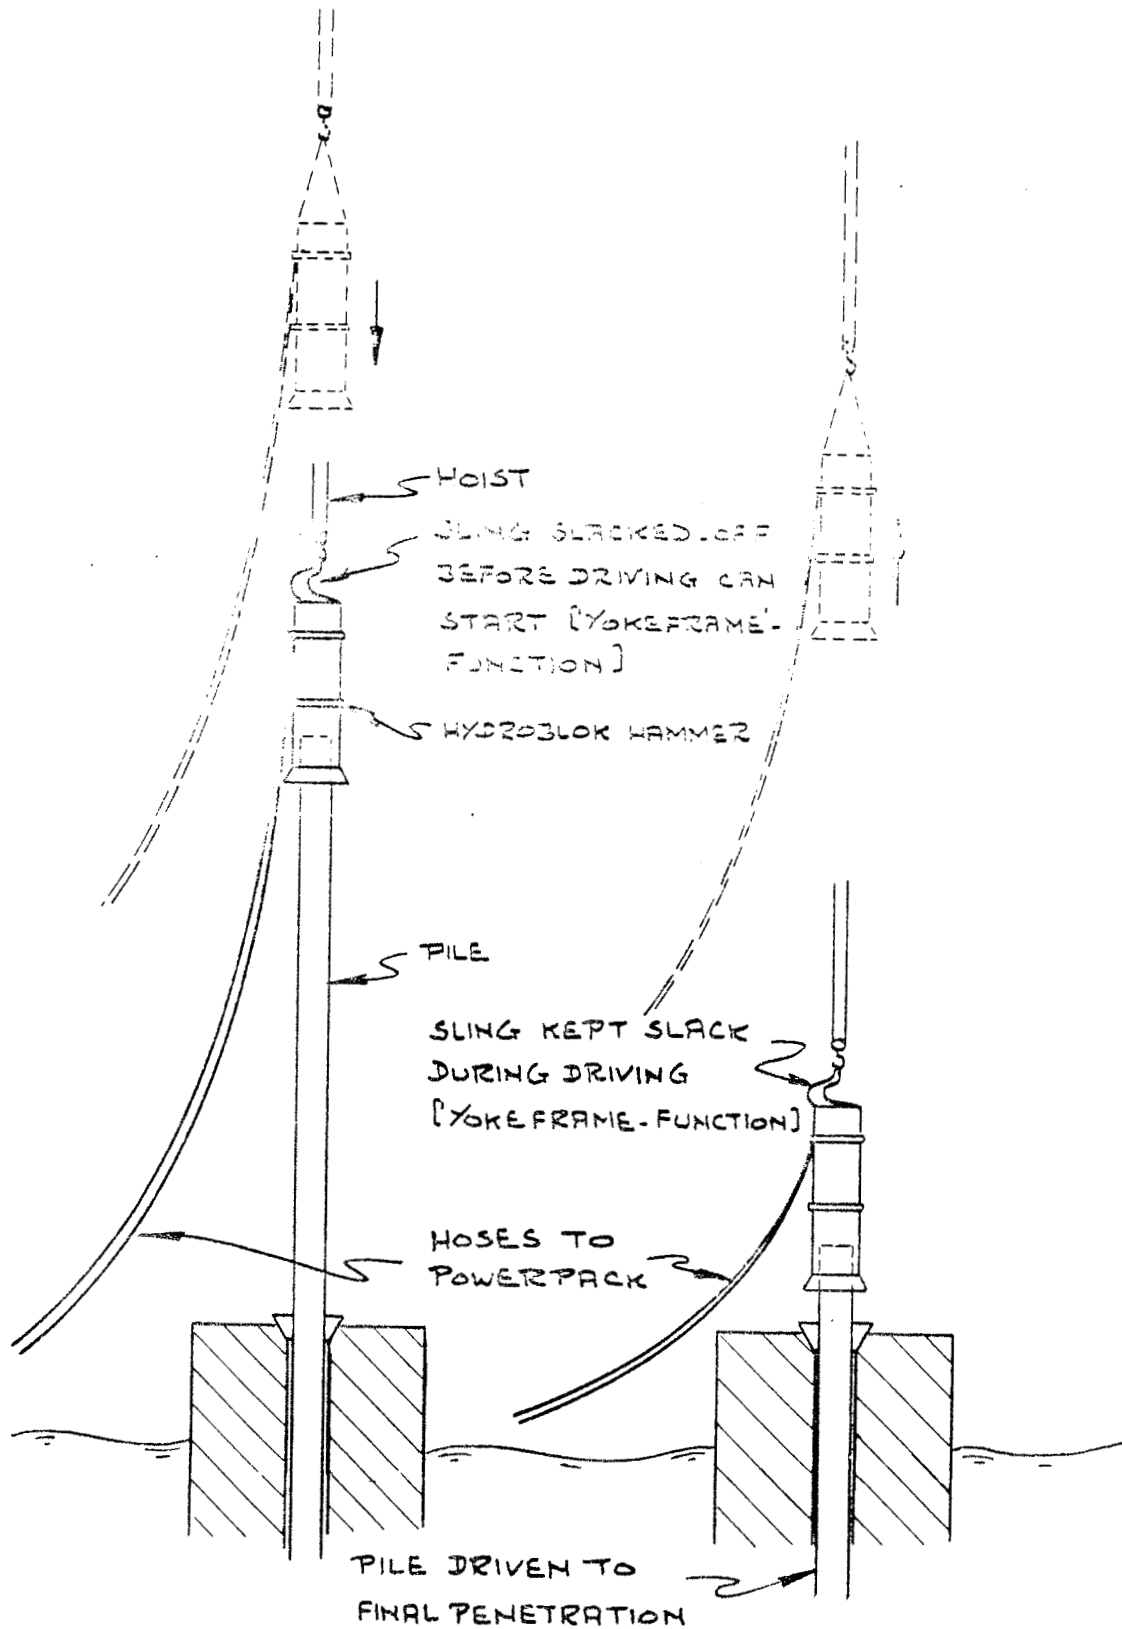 HOIST
SLING SLACKED.OFF
BEFORE DRIVING CAN
START ['YOKEFRAME'-
FUNCTION]
HYDROBLOK HAMMER
PILE
SLING KEPT SLACK
DURING DRIVING
[YOKEFRAME-FUNCTION]
HOSES TO
POWERPACK
PILE DRIVEN TO
FINAL PENETRATION